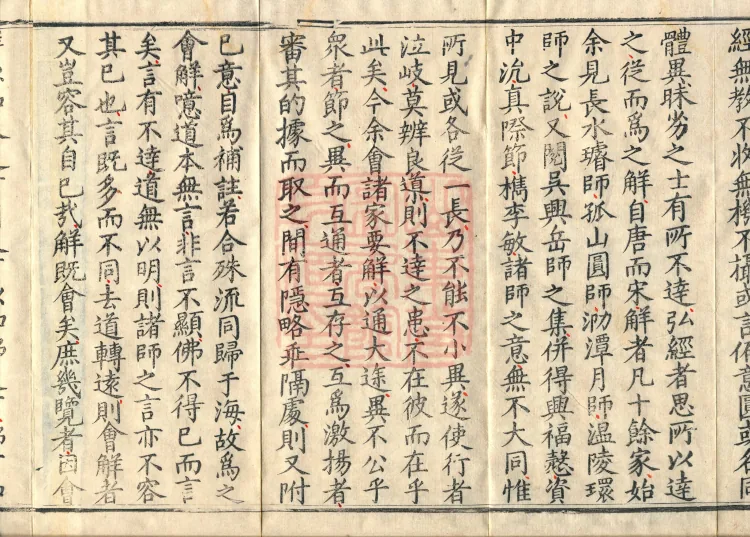 經無教不收無機不攝或言
體異昧劣之士有所不達弘經者思所以達
之從而爲之解自唐而宋解者凡十餘家始
余見長水璿師孤山圓師泐潭月師溫陵環
師之說又閱吳興岳師之集併得興福慤資
中沇真際節檇李敏諸師之意無不大同惟
所見或各從一長乃不能不小異遂使行者
泣岐莫辨良導則不達之患不在彼而在乎
此矣今余會諸家要解以通大途異不公乎
衆者節之異而互通者互存之互爲激揚者
審其的據而取之間有隱略乖隔處則又附
已意目爲補註若合殊流同歸于海故爲之
會解噫道本無言非言不顯佛不得已而言
矣言有不達道無以明則諸師之言亦不容
其已也言既多而不同去道轉遠則會解者
又豈容其自已哉解既會矣庶幾覽者因會